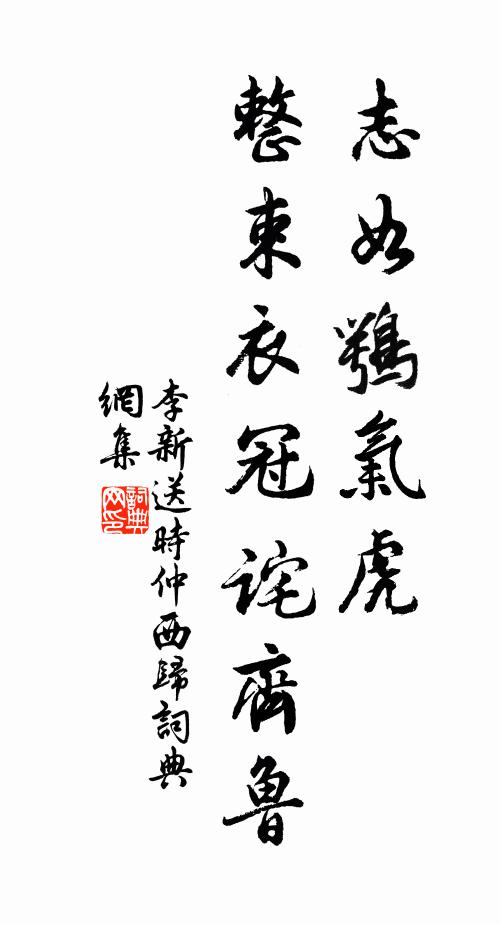 志如鶚氣虎
整束衣冠詫齊魯
李新送時仲西歸詞典
網集
詞典
网印